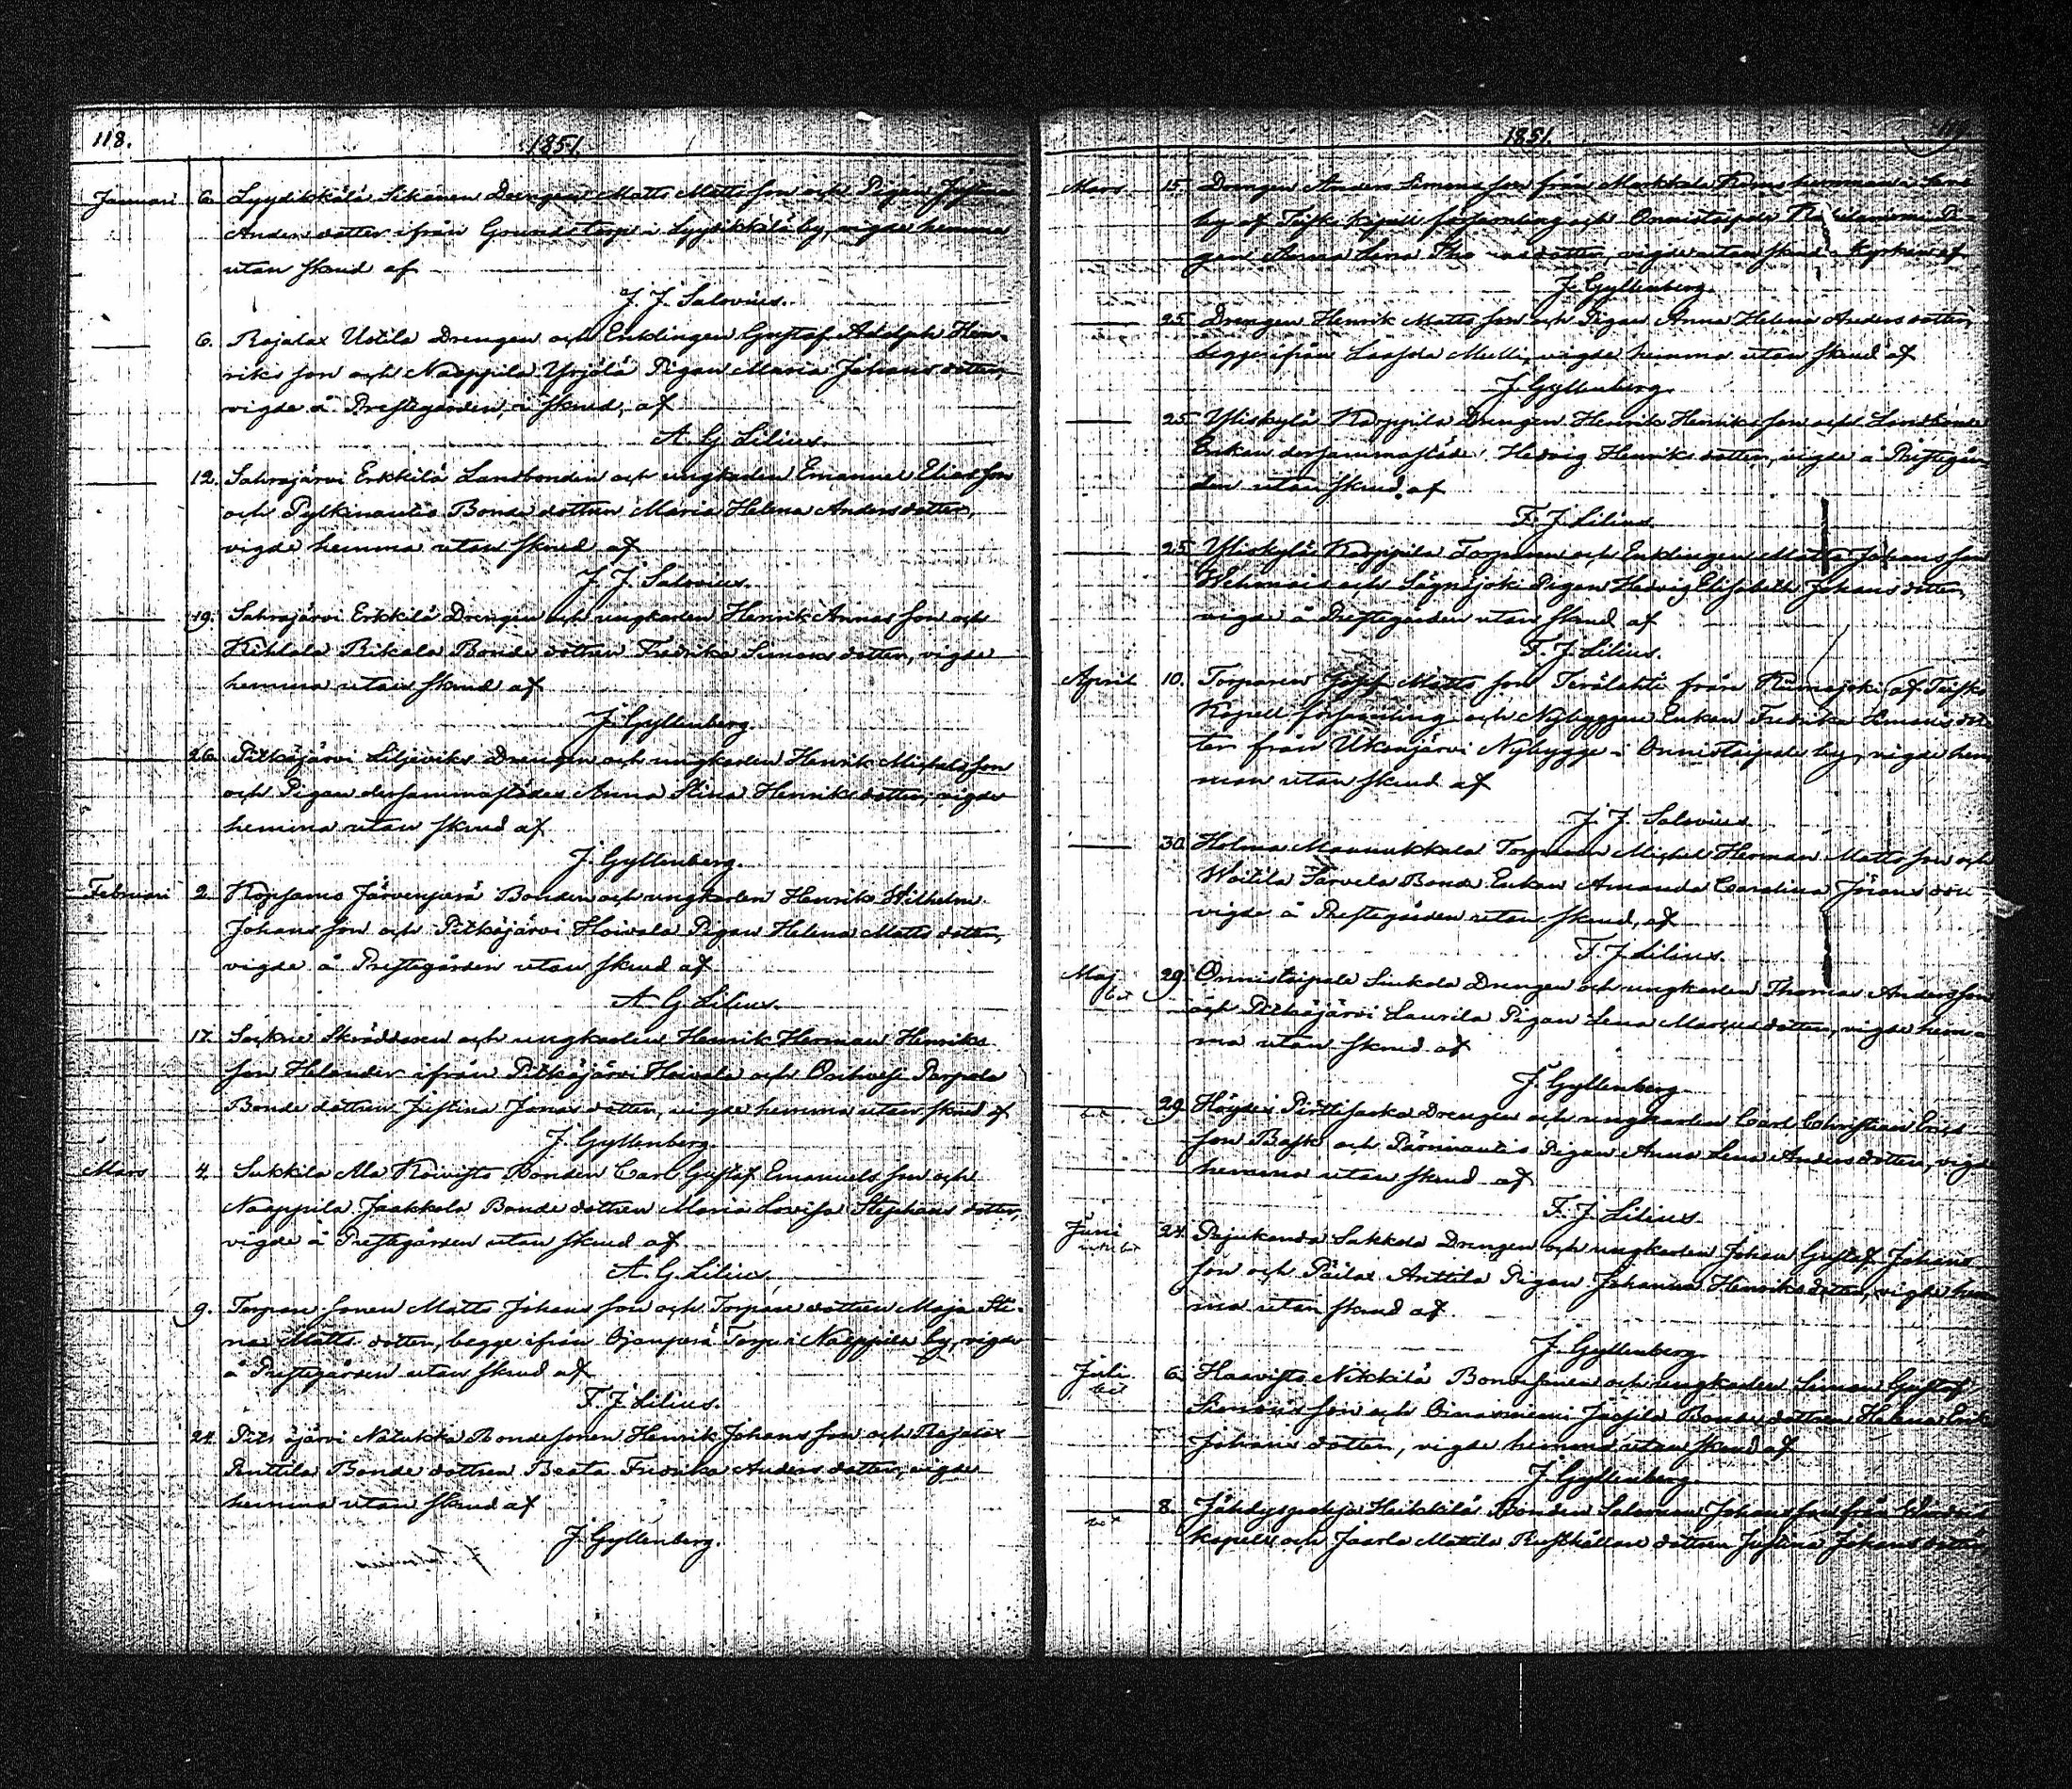 118.
1851.
Januari 6. Lyydikkälä Sikanen Drengen Matts Mattsson och Pigan Justina
Anders dotter ifrån Grunds torp i Lyydikkälä by, vigde hemma
utan skrud af
J. J. Salovius.
6. Rajalax Ustila Drengen och Enklingen Gustaf Adolph Hen-
riks son och Naappila Yrjölä Pigan Maria Johans dotter,
vigde å Prestegården, i skrud, af
A. G. Lilius.
12. Sahrajärvi Erkkilä Landbonden och ungkarlen Emanuel Eliasson
och Pylkinautio Bonde dottren Maria Helena Anders dotter,
vigde hemma utan skrud af
J. J. Salovius.
19. Sahrajärvi Erkkilä Drengen och ungkarlen Henrik Annas son och
Rikala Bonde dottren Fredrika Simons dotter, vigde
hemma utan skrud af
J. Gyllenberg.
26. Pitkäjärvi Liljeviks Drengen och ungkarlen Henrik Michelsson
och Pigan dersammastädes Anna Stina Henriks dotter, vigde
hemma utan skrud af
J. Gyllenberg.
Februari 2. Kopsamo Järvenperä Bonden och ungkarlen Henrik Wilhelm
Johans son och Pitkäjärvi Hoivala Pigan Helena Matts dotter,
vigde å Prestegården utan skrud af
A. G. Lilius.
17. Sockne Skräddaren och ungkarlen Henrik Herman Henriks
son Helander ifrån Pitkäjärvi Hoivala och Orihvesi Parpola
Bonde dottren Justina Jonas dotter, vigde hemma utan skrud af
J. Gyllenberg.
Mars 4. Sukkila Ala Koivisto Bonden Carl Gustaf Emanuels son och
Naappila Jaakkola Bonde dottren Maria Lovisa Stephans dotter,
vigde å Prestegården utan skrud af
A. G. Lilius.
9. Torpare sonen Matts Johans son och Torpare dottren Maja Sti-
na Matts dotter, begge ifrån Ojanperä Torp i Naappila by, vigde
å Prestegården utan skrud af
F. J. Lilius.
24. Pitkäjärvi Natukka Bondesonen Henrik Johans son och Rajalax
Anttila Bonde dottren Beata Fredrika Anders dotter, vigde
hemma utan skrud af
J. Gyllenberg.
1851.
Mars 15. Drengen Anders Simons son från Markkula
by af Teisko Kapell församling och Onnistaipale Pi-
gan Anna Lena Thomas dotter, vigde utan skrud i Kyrkan af
J. Gyllenberg.
25. Drengen Henrik Matts son och Pigan Anna Helena Anders dotter,
begge ifrån Laasola Mulli, vigde hemma utan skrud af
J. Gyllenberg.
25. Yliskylä Karppila Drengen Henrik Henriks son och Landbonde
Enkan dersammastädes Hedvig Henriks dotter, vigde å Prestegår-
den utan skrud, af
F. J. Lilius.
25. Yliskylä Karppila Torparen och Enklingen Matts Johans son
och Sägnäjoki Pigan Hedvig Elisabeth Johans dotter,
vigde å Prestegården utan skrud af
F. J. Lilius.
April 10. Torparen Josef Matts son Terälahti från Kumajoki af Teisko
Kapell församling och Nybyggare Enkan Fredrika Simons dot-
ter från Ukonjärvi Nybygge i Onnistaipale by, vigde hem
man utan skrud af
J. J. Salovius.
30. Holma Maunukkala Torparen Michel Herman Matts son och
Woitila Tarvela Bonde Enkan Amanda Carolina Jörans
vigde å Prestegården utan skrud, af
F. J. Lilius.
Maj 29. Onnistaipale Siukola Drengen och ungkarlen Thomas Andersson
och Pitkäjärvi Laurila Pigan Lena Marcus dotter, vigde hem-
ma utan skrud af
J. Gyllenberg.
29. Drengen och ungkarlen Carl Christian Erics
son Bask och Pärnänautio Pigan Anna Lena Anders dotter, vigde
hemma utan skrud af
F. J. Lilius.
Juni 24. Pajukanda Sukkola Drengen och ungkarlen Johan Gustaf Johans
son och Päilax Anttila Pigan Johanna Henriks dotter, vigde hem
ma utan skrud af
J. Gyllenberg.
Juli 6. Haavisto Nikkilä Bondesonen och ungkarlen Simon Gustaf
Simons son och Oinasniemi Jaosila Bonde dottren Helena
Johans dotter, vigde hemma utan skrud af
J. Gyllenberg.
8. Jähdyspohja Heikkilä Bonden Salomon Johans son från Wirdois
kapell och Jaarla Mattila Rusthållare dottren Justina Johans dotter,